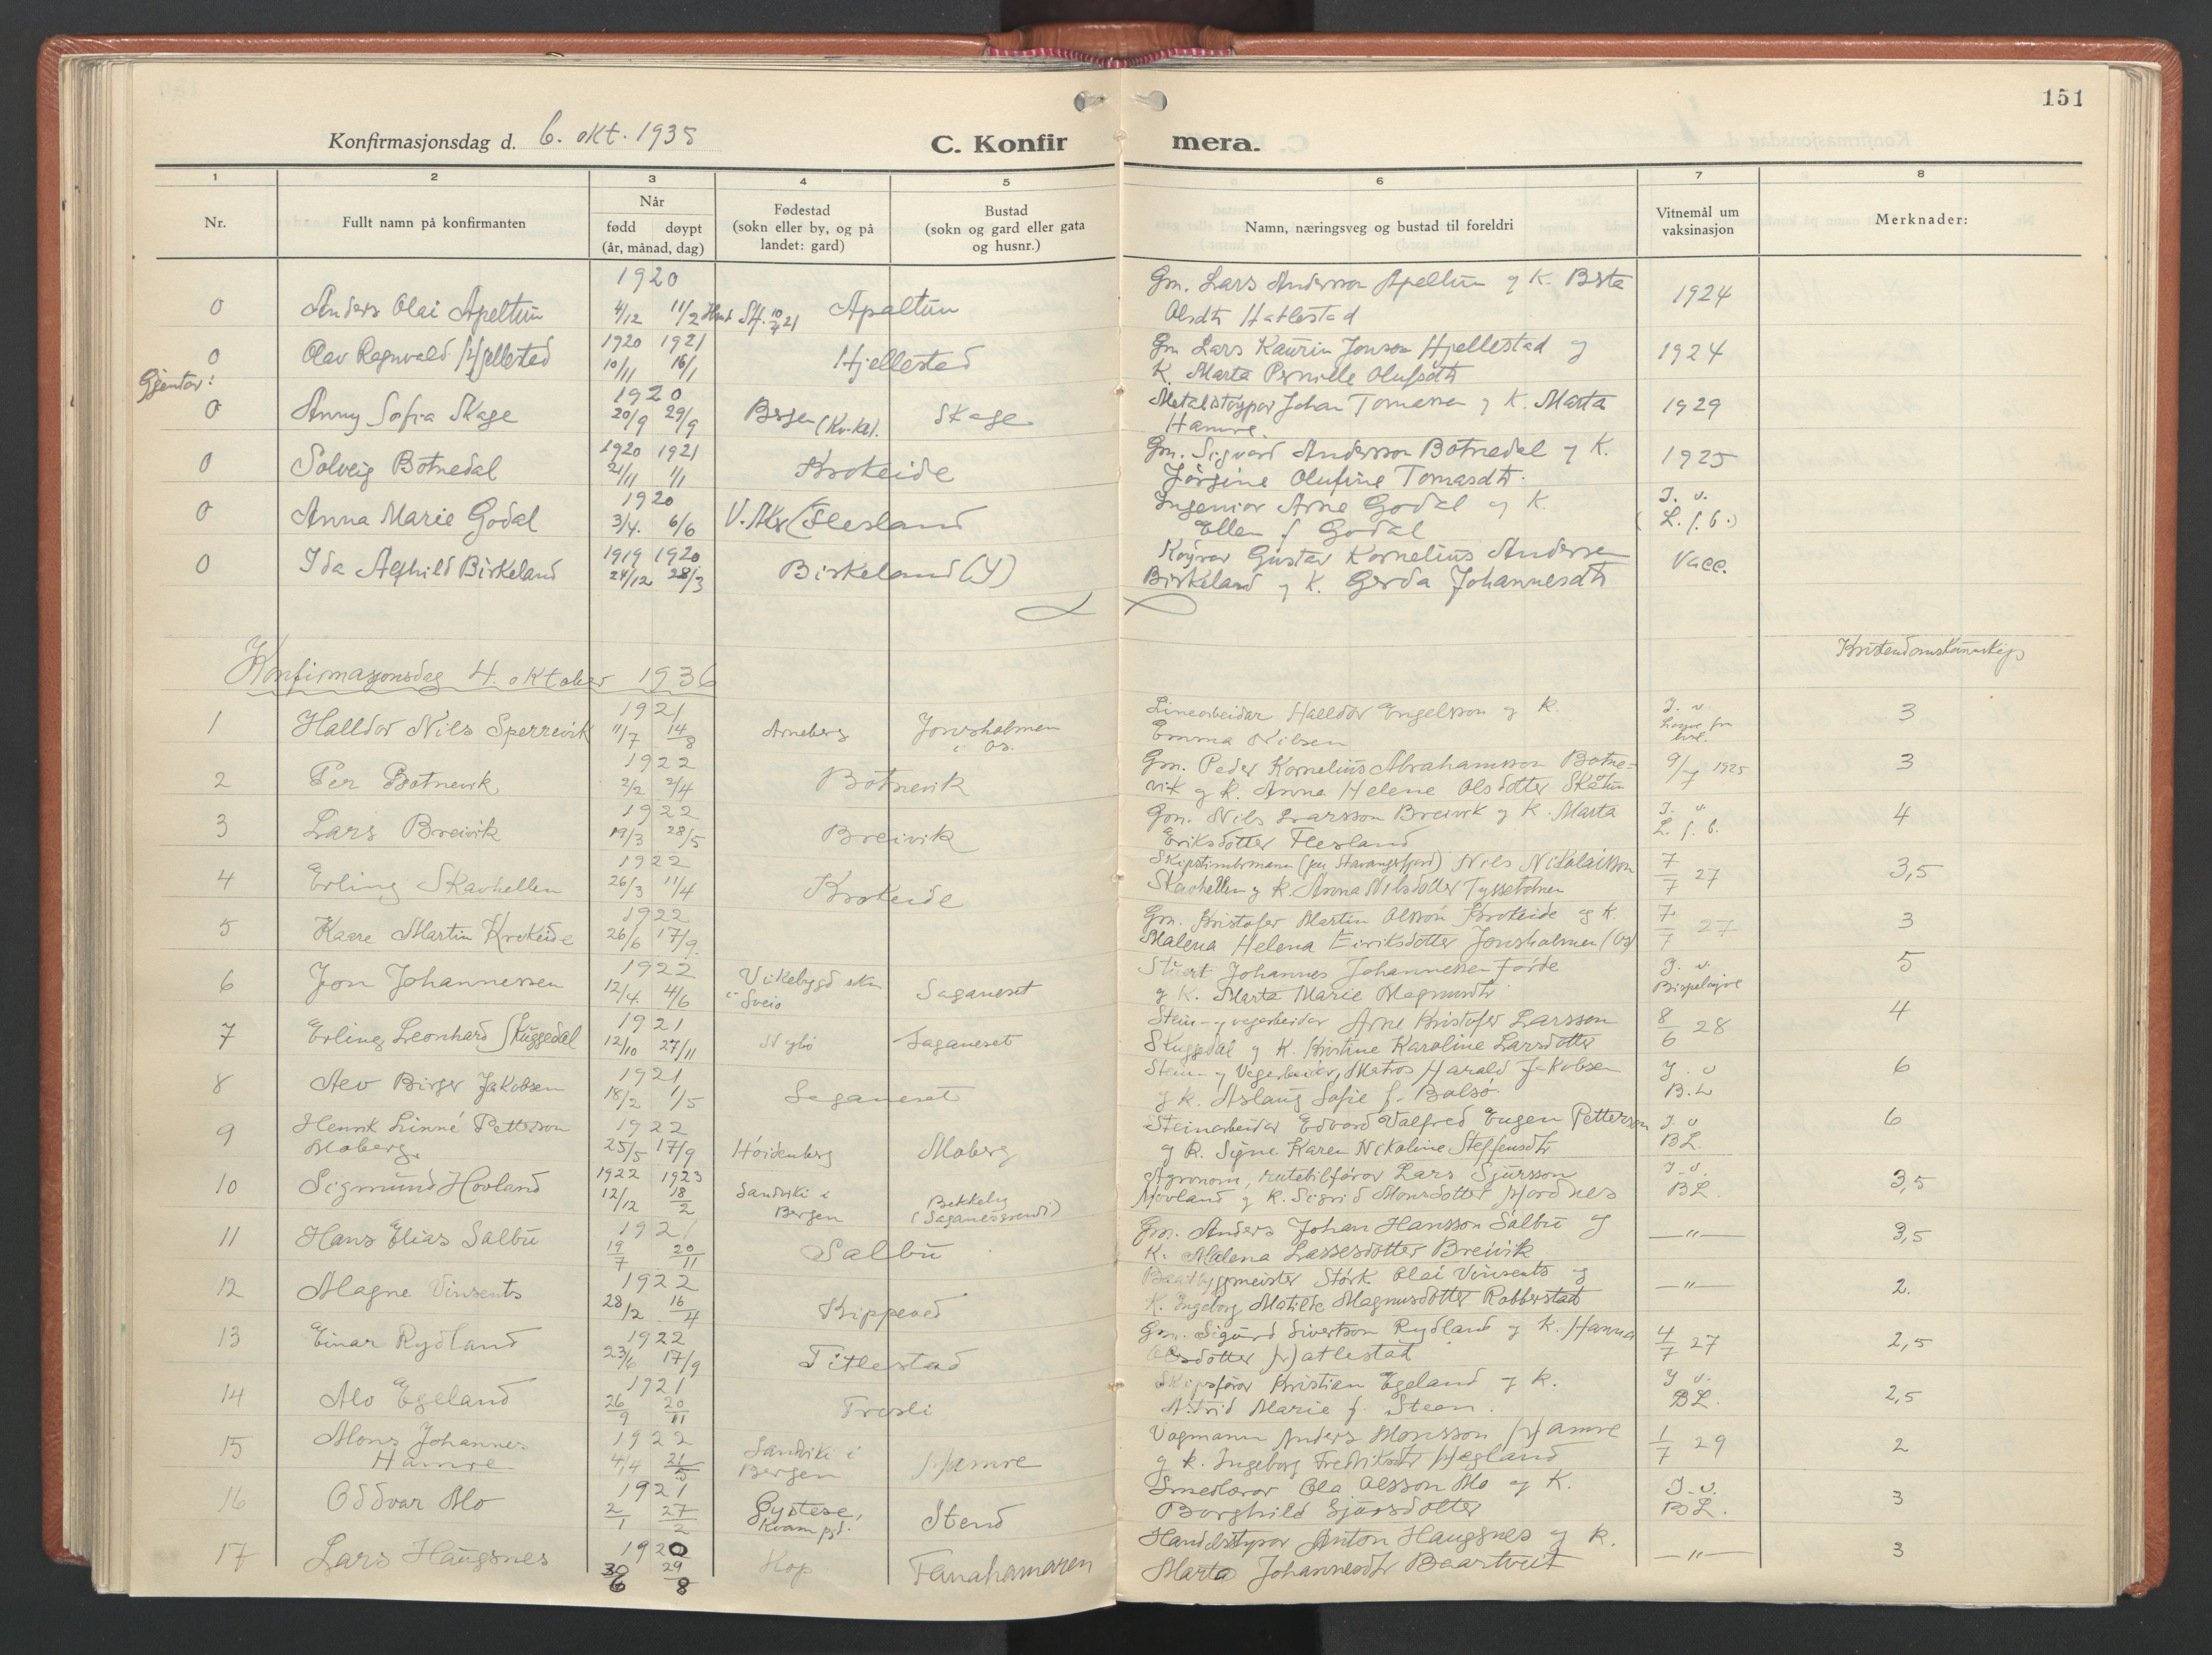 151
Konfirmasjonsdag d. 6. okt. 1935
C. Konfir mera.
1 2 3 4 5 6 7 8
Nr.
Fullt namn på konfirmanten
Når
fødd døypt
(år, månad, dag)
Fødestad
(sokn eller by, og på
landet: gard)
Bustad
(sokn og gard eller gata
og husnr.)
Namn, næringsveg og bustad til foreldri
Vitnemål um
vaksinasjon
Merknader:
1920
0 Anders Olai Apeltun 4/12 11/2 Apaltun
Gm. Lars Andersson Apeltun og K. Berta
Olsdtr Hatlestad
1924
1920 1921
0 Olav Ragnvald Hjellestad 10/11 16/1 Hjellestad
Gm Lars Kaurin Jonson Hjellestad og
K. Marta Pernille Olufsdtr
1924
Gjentor:
1920
0 Anny Sofia Skage 20/9 29/9 Bergen (Kv.kl). Skage
Metalstøypar Johan Tomessen og K. Marta
Hamre.
1929
1920 1921
0 Solveig Botnedal 21/11 1/1 Krokeide
Gm. Sigvard Andersson Botnedal og K.
Jørgine Olufine Tomasdtr.
1925
1920
0 Anna Marie Godal 3/4. 6/6 Flesland
Ingeniør Arne Godal og K.
Ellen f. Godal
J. v.
(L. f. b.)
1919 1920
0 Ida Aqshild Birkeland 24/12 28/3 Birkeland (Y)
Køyrar Gustav Kornelius Andersen
Birkeland og K. Gerda Johannesdtr
Vacc.
Konfirmasjonsdag 4. oktober 1936
Kristendomskunnskap
1921
1 Halldor Nils Sperrevik 11/7 14/8 Arneberg Jonsholmen
i Os.
Linearbeidar Halldor Engelsson og K.
Emma Nilsen
J. v.
3
1922
2 Per Botnevik 2/2 2/4 Botnevik
Gm. Peder Kornelius Abrahamsson Botne-
vik og K. Anna Helene Olsdotter Skåtun
9/7 1925
3
1922
3 Lars Breivik 19/3 28/5 Breivik
Gm. Nils Larsson Breivik og K. Marta
Eriksdotter Flesland
J. v.
L. f. b.
4
1922
4 Erling Skavhellen 26/3 11/4 Krokeide
Skipstimbrmann (på Stavangerfjord) Nils Nikolaisson
Skavhellen og K. Anna Nilsdotter Tyssebotnen
7/7 27
3,5
1922
5 Kaare Martin Krokeide 26/6 17/9.
Gm. Kristofer Martin Olsson Krokeide og K.
Malena Helena Eiriksdotter Jonsholmen (Os)
7/7 27
3
1922
6 Jon Johannessen 12/4. 4/6 Vikebygd skn
i Sveio
Saganeset
Stuert Johannes Johannessen Førde
og K. Marta Marie Magnusdtr
J. v.
Bispeløyve
5
1921
7 Erling Leonhard Skuggedal 12/10 27/11 Nybø Saganeset
Stein- og vegarbeidar Arne Kristofer Larsson
Skuggedal og K. Kristine Karoline Larsdotter
8/6 28
4
1921
8 Alv Birger Jakobsen 18/2 1/5 Saganeset
Stein- og Vegarbeidar, Matros Harald Jakobsen
og K. Aslaug Sofie f. Balsø
J. v
B.L
6
1922
9 Henrik Linné Petterson
Moberg. 25/5 17/9 Høidenberg Moberg
Steinarbeidar Edvard Valfred Eugen Petterson
og K. Signe Karen Nikoline Steffensdtr
J. v
BL.
6
1922 1923
10 Sigmund Hovland 12/12 18/2 Sandviki i
Bergen
Bekkeby
(Saganesgrendi)
Agronom, rutebilførar Lars Sjursson
Hovland og K. Sigrid Monsdotter Hordnes
J. v.
BL.
3,5
1921
11 Hans Elias Salbu 19/7 20/11 Salbu
Gm. Anders Johan Hansson Salbu og
K. Malena Lassesdotter Breivik
—"—
3,5
1922
12 Magne Vinsents 28/2 16/4 Kippeneset
Baatbyggmeister Størk Olai Vinsents og
K. Ingeborg Matilde Magnusdotter Robberstad
—"—
2.
1922
13 Einar Rydland 23/6 17/9 Titlestad
Gm. Sigurd Sivertson Rydland og K. Hanna
Olsdotter Hatlestad
4/7 27
2,5
1921
14 Alv Egeland 26/9 20/11 Tresli
Skipsførar Kristian Egeland og K.
Astrid Marie f. Steen.
J v.
BL.
2,5
1922
15 Mons Johannes
Hamre 4/4 21/5 Sandviki i
Bergen
Hamre
Vogmann Anders Monsson Hamre
og K. Ingeborg Fredriksdtr Hegland
1/7 29
2
1921
16 Oddvar Mo 2/1 27/2 Øystese,
Kvam pgd.
Stend
Smedlærar Ola Olsson Mo og K.
Borghild Sjursdotter
J. v.
BL.
3
1920
17 Lars Haugsnes 30/6 29/8 Hop Fanahamaren
Handelstypar Anton Haugsnes og K.
Marta Johannesdtr Baartveit
—"—
3